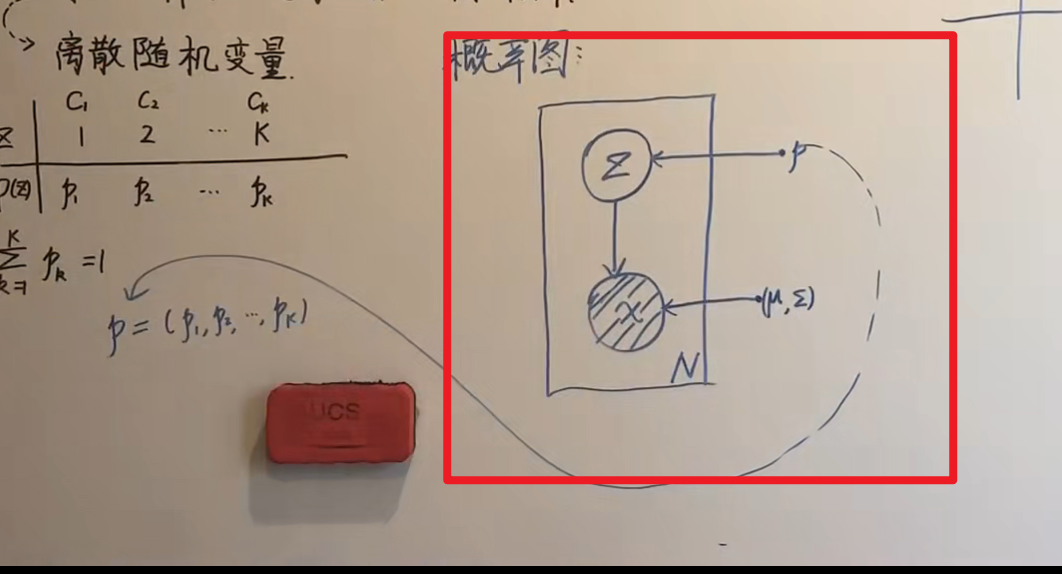 离散随机变量.
C₁ C₂ Cₖ
z 1 2 ... K
p(z) p₁ p₂ ... pₖ
K
∑ pₖ = 1
k=1
p = (p₁, p₂, ..., pₖ)
UCS
概率图:
z p
x (μ, Σ)
N